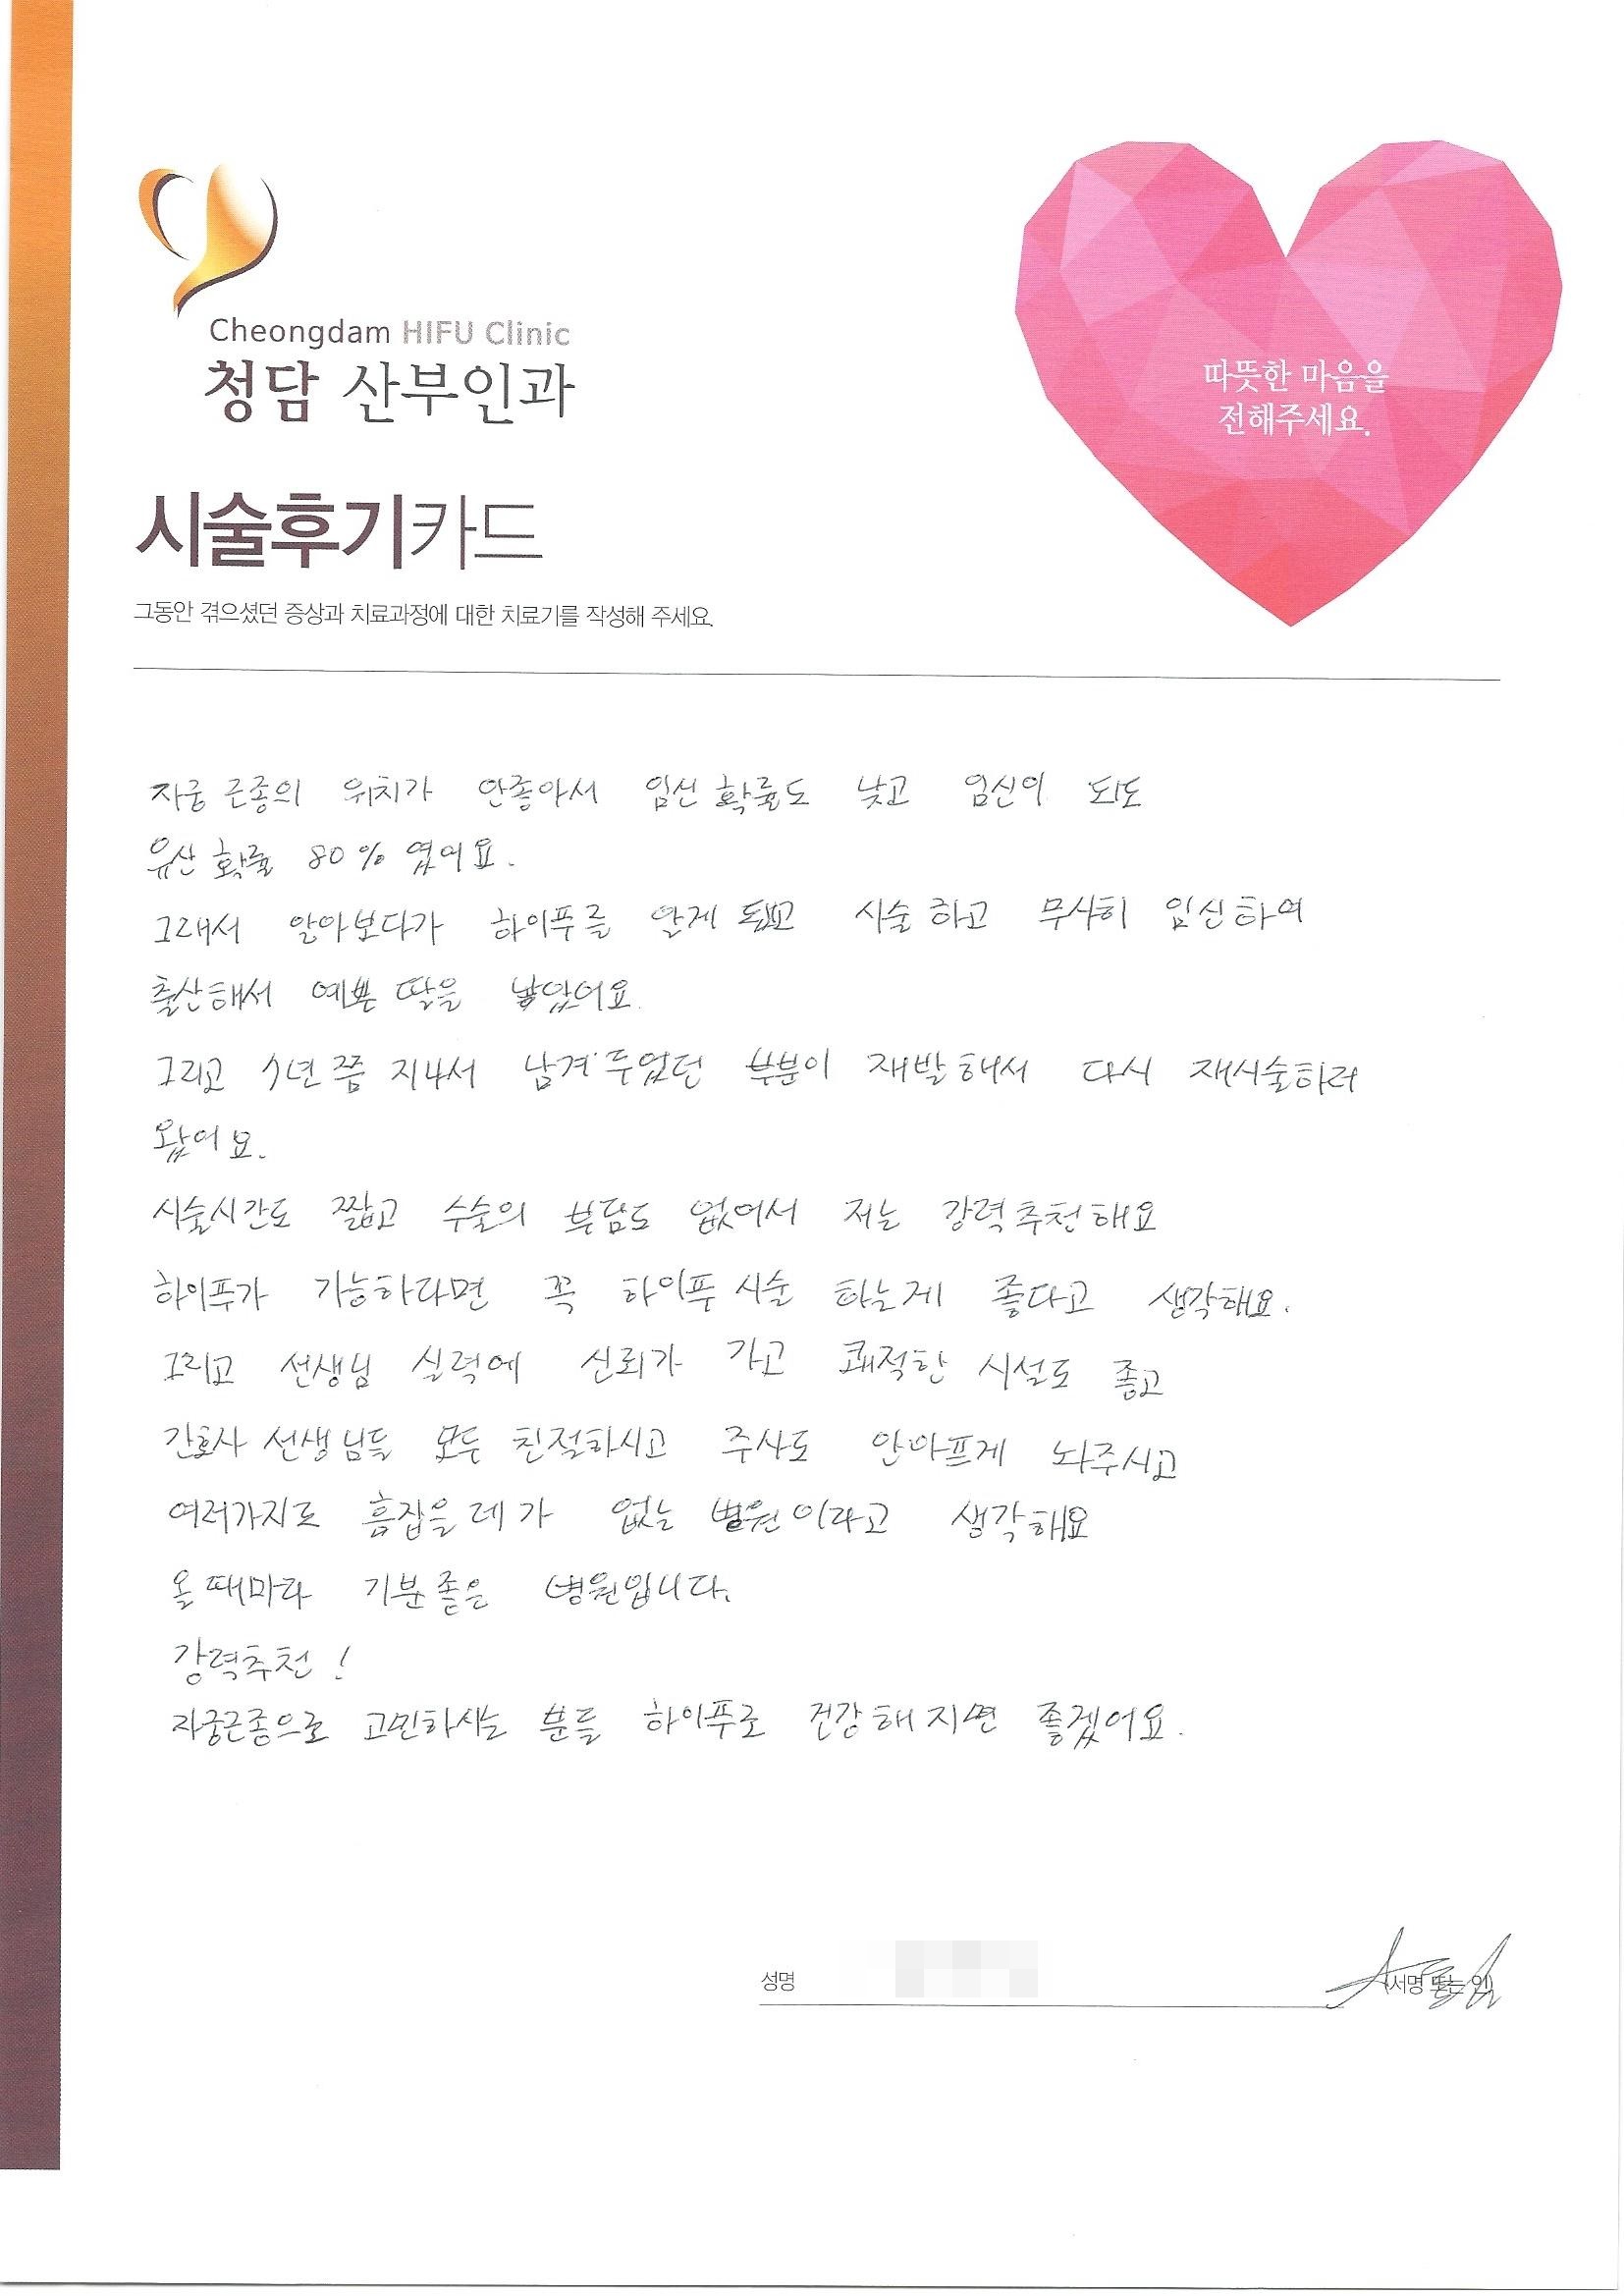 Cheongdam HIFU Clinic
청담 산부인과
따뜻한 마음을
전해주세요.
시술후기카드
그동안 겪으셨던 증상과 치료과정에 대한 치료기를 작성해 주세요.
자궁 근종의 위치가 안좋아서 임신 확률도 낮고 임신이 되도
유산 확률 80% 였어요.
그래서 알아보다가 하이푸를 알게 됐고 시술하고 무사히 임신하여
출산해서 예쁜 딸을 낳았어요.
그리고 7년쯤 지나서 남겨두었던 부분이 재발해서 다시 재시술하러
왔어요.
시술시간도 짧고 수술의 부담도 없어서 저는 강력추천해요
하이푸가 가능하다면 꼭 하이푸 시술 하는게 좋다고 생각해요.
그리고 선생님 실력에 신뢰가 가고 쾌적한 시설도 좋고
간호사 선생님들 모두 친절하시고 주사도 안아프게 놔주시고
여러가지로 흠잡을데가 없는 병원이라고 생각해요
올때마다 기분좋은 병원입니다.
강력추천!
자궁근종으로 고민하시는 분들 하이푸로 건강해지면 좋겠어요.
성명
(서명 또는 인)